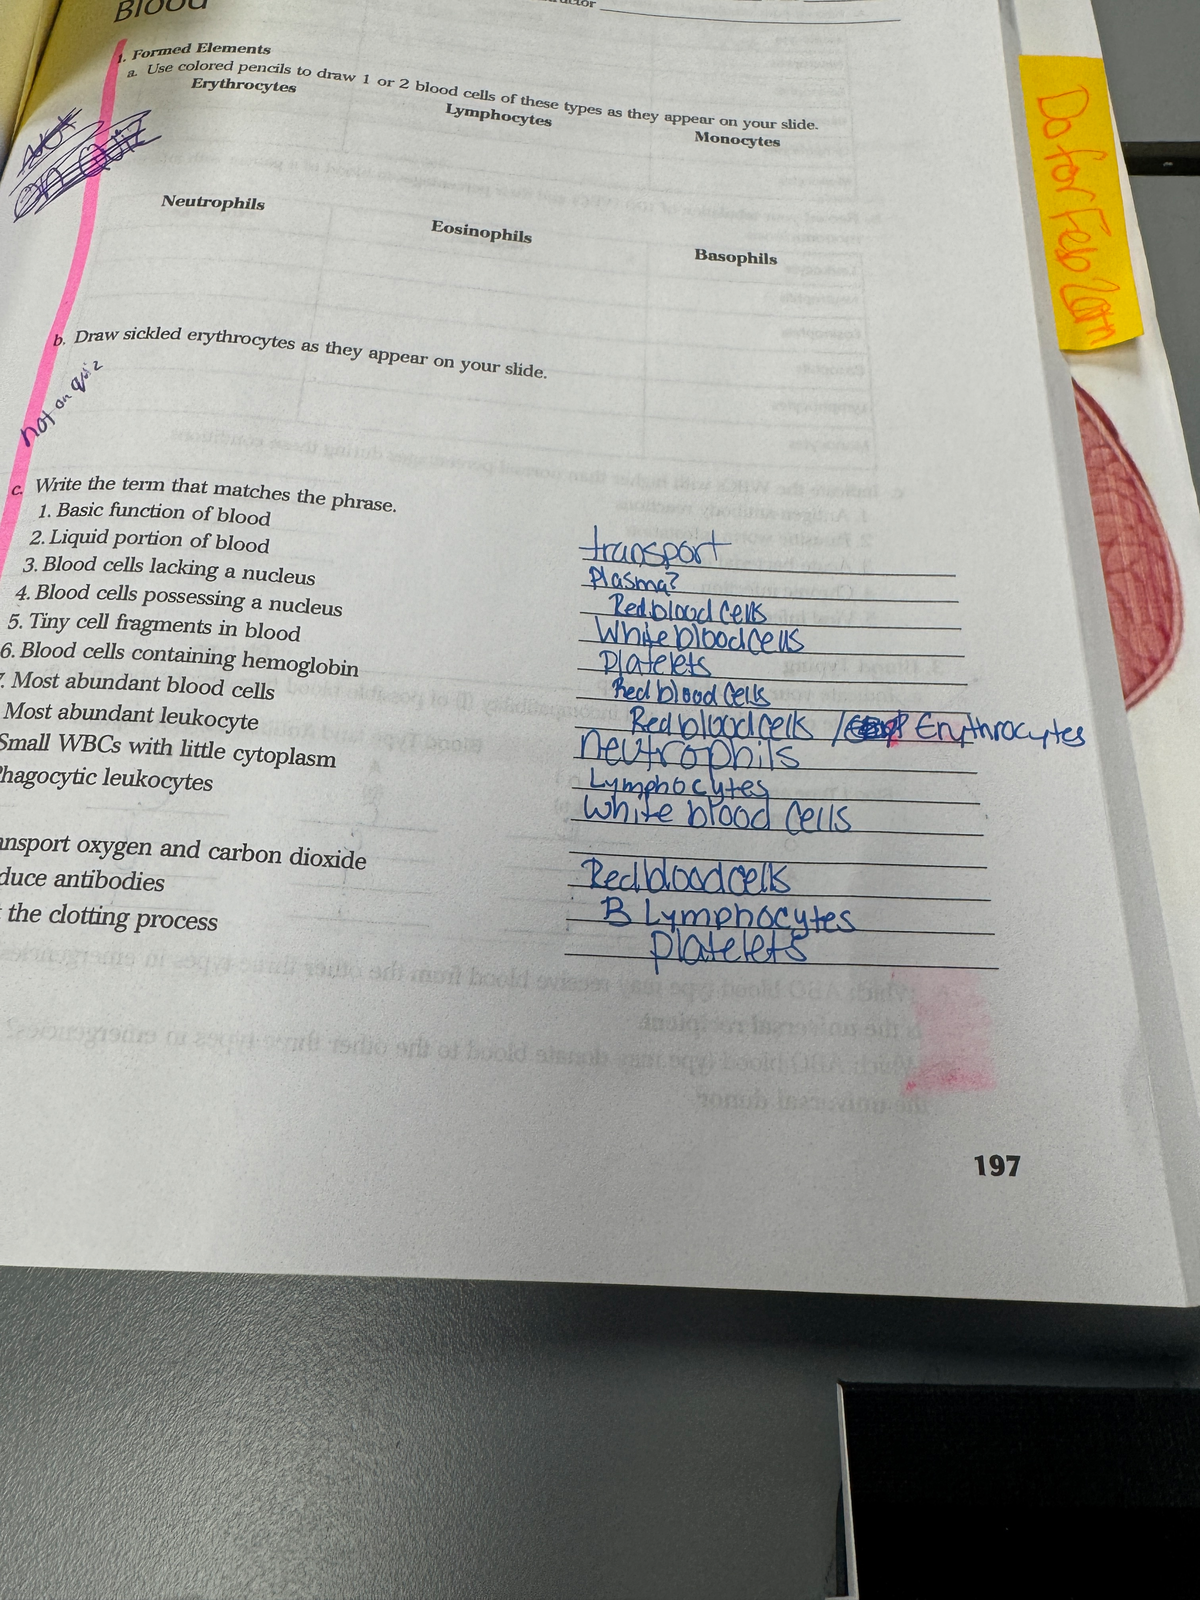 Blood
1. Formed Elements
a. Use colored pencils to draw 1 or 2 blood cells of these types as they appear on your slide.
Erythrocytes Lymphocytes Monocytes
on Quiz
Neutrophils Eosinophils Basophils
Do for Feb
b. Draw sickled erythrocytes as they appear on your slide.
not on quiz
c. Write the term that matches the phrase.
1. Basic function of blood transport
2. Liquid portion of blood Plasma?
3. Blood cells lacking a nucleus Red blood cells
4. Blood cells possessing a nucleus White blood cells
5. Tiny cell fragments in blood Platelets
6. Blood cells containing hemoglobin Red blood cells
7. Most abundant blood cells Red blood cells / Erythrocytes
Most abundant leukocyte neutrophils
Small WBCs with little cytoplasm Lymphocytes
Phagocytic leukocytes White blood cells
ansport oxygen and carbon dioxide Red blood cells
duce antibodies B Lymphocytes
the clotting process platelets
197